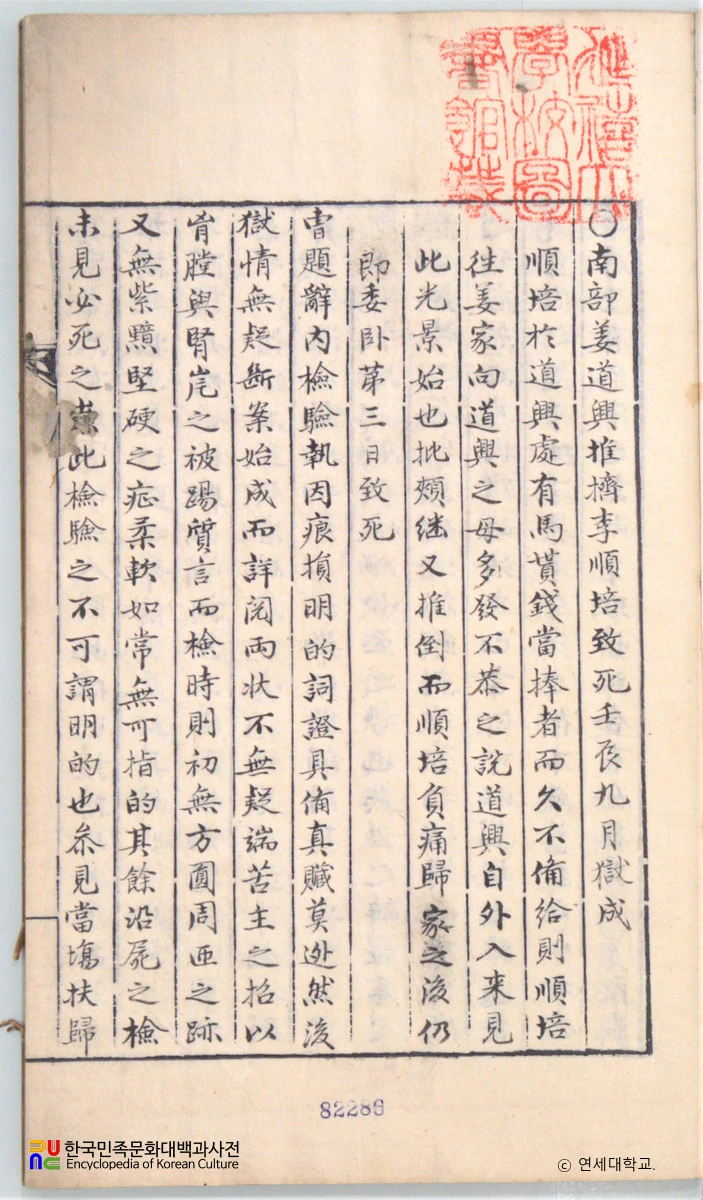 〇南部姜道興推擠李順培致死壬辰九月獄成
順培於道興處有馬貰錢當捧者而久不備給則順培
往姜家向道興之母多發不恭之說道興自外入來見
此光景始也批頰継又推倒而順培負痛歸家之後仍
即委臥第三日致死
曺題辭內檢驗執因痕損明的詞證具備真贓莫逃然後
獄情無疑斷案始成而詳閱両状不無疑端苦主之招以
胷膛與腎岸之被踢質言而檢時則初無方圓周匝之跡
又無紫黯堅硬之症柔軟如常無可指的其餘沿屍之檢
未見必死之此檢驗之不可謂明的也叅見當塲扶歸
延禧大
學校圖
書館蔵
82286
한국민족문화대백과사전
Encyclopedia of Korean Culture
© 연세대학교.